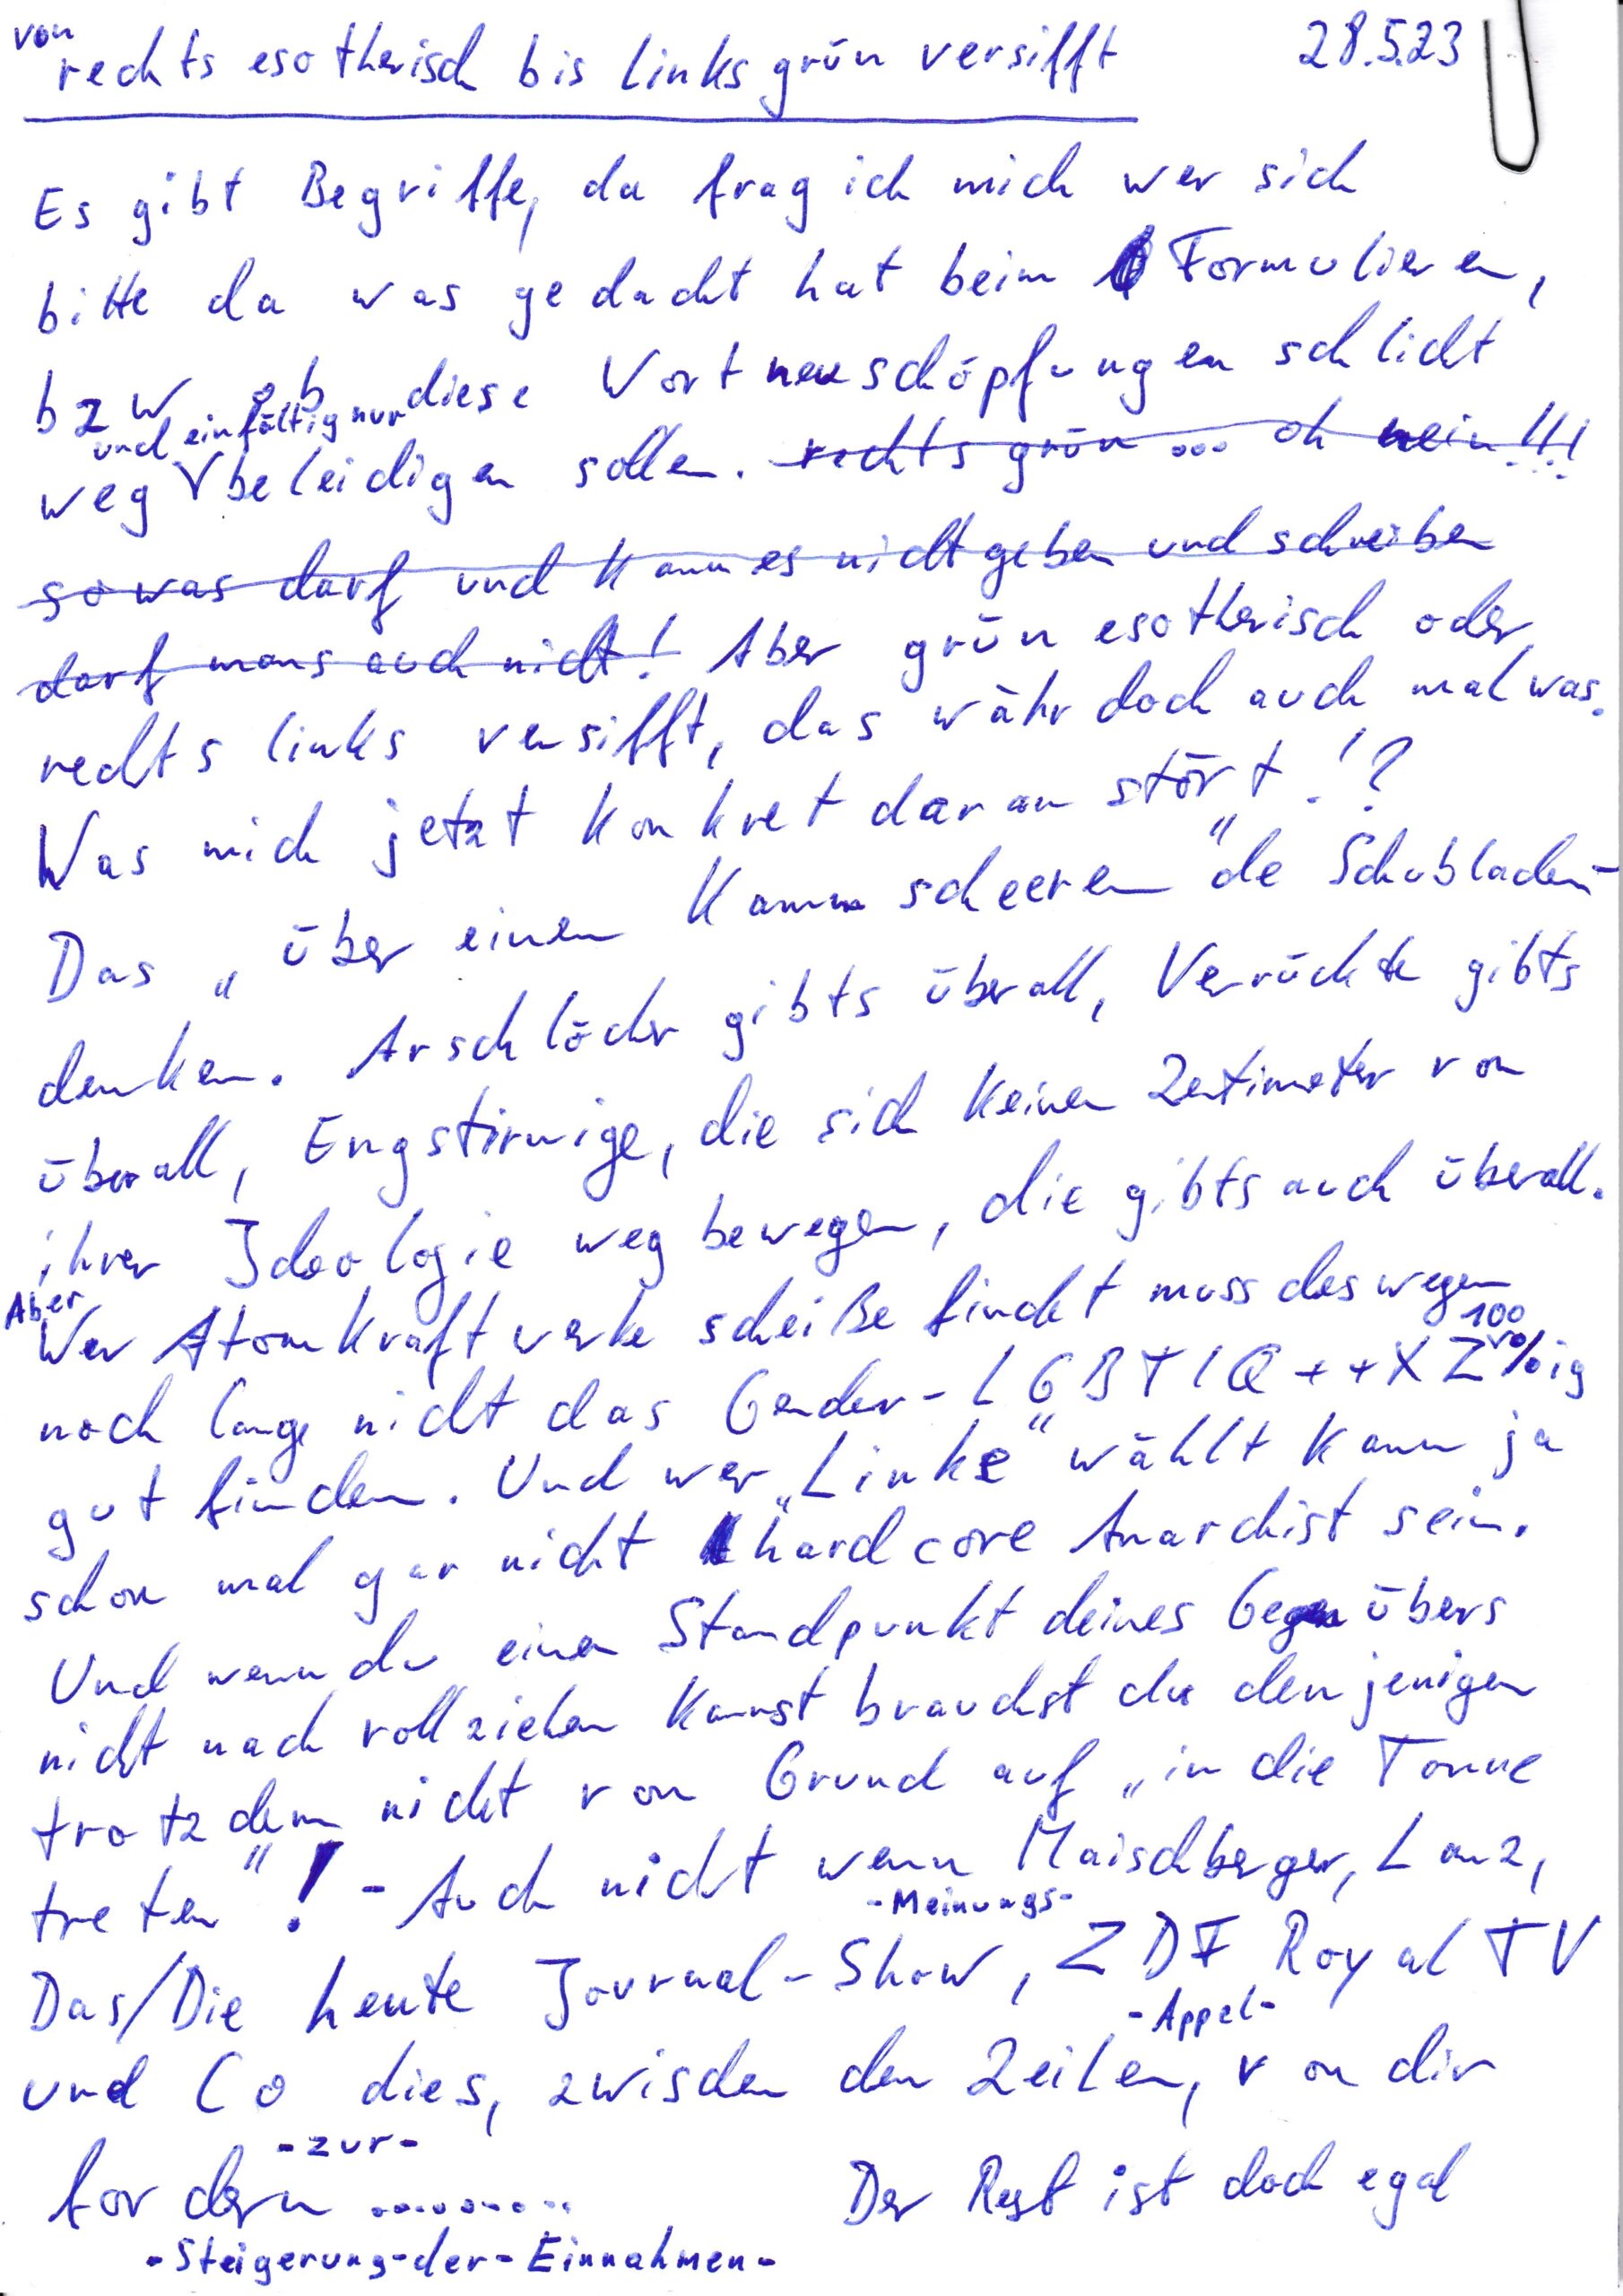 von
rechts esotherisch bis links grün versifft 28.5.23
Es gibt Begriffe, da frag ich mich wer sich
bitte da was gedacht hat beim Formulieren,
bzw ob diese Wortneuschöpfungen schlicht
und einfältig nur
weg beleidigen sollen. rechts grün ... oh nein!!!
sowas darf und kann es nicht geben und schreiben
darf mans auch nicht! Aber grün esotherisch oder
rechts links versifft, das währ doch auch mal was.
Was mich jetzt konkret daran stört!?
Das „über einen Kamm scheeren" de Schubladen-
denken. Arschlöcher gibts überall, Verrückte gibts
überall, Engstirnige, die sich keinen Zentimeter von
ihrer Ideologie weg bewegen, die gibts auch überall.
Aber
Wer Atomkraftwerke scheiße findet muss deswegen
100
noch lange nicht das Gender-LGBTIQ++XZ %ig
gut finden. Und wer „Linke" wählt kann ja
schon mal gar nicht hardcore Anarchist sein.
Und wenn du einen Standpunkt deines Gegenübers
nicht nach vollziehen kannst brauchst du denjenigen
trotzdem nicht von Grund auf „in die Tonne
treten"! - Auch nicht wenn Maischberger, Lanz,
-Meinungs-
Das/Die heute Journal-Show, ZDF Royal TV
-Appel-
und Co dies, zwischen den Zeilen, von dir
-zur-
fordern .......... Der Rest ist doch egal
-Steigerung-der-Einnahmen-